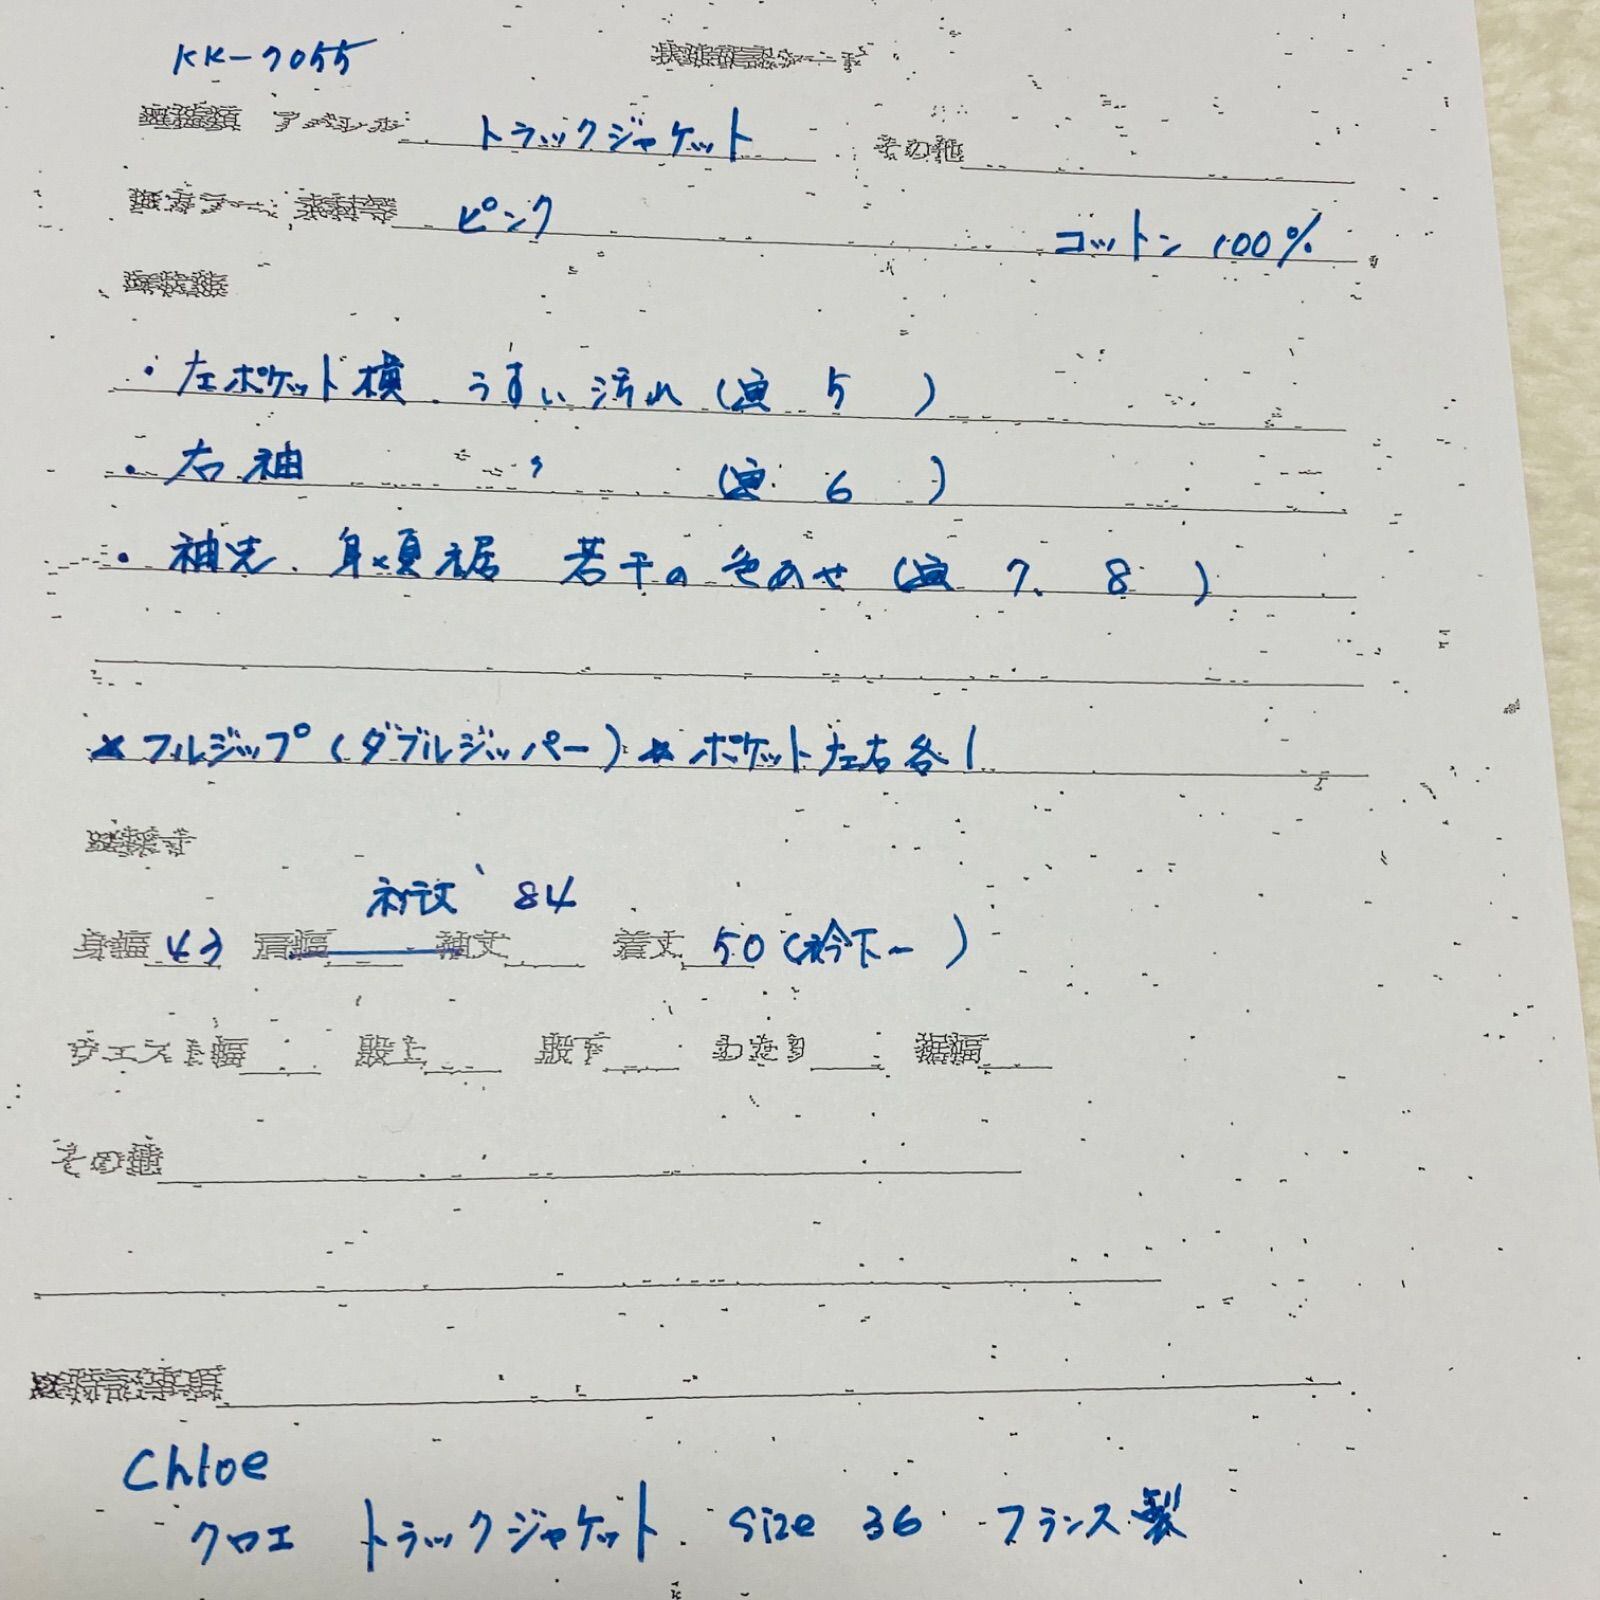 KK-7055 状態確認シート
種類 アパレル トラックジャケット その他
カラー、素材等 ピンク コットン 100%
状態
・左ポケット横、うすい汚れ ( 5 )
・右袖 〃 ( 6 )
・袖先、身頃裾 若干の色あせ ( 7、8 )
★フルジップ(ダブルジッパー)★ポケット左右各1
採寸
裄丈 84
身幅 43 肩幅 袖丈 着丈 50 (衿下〜 )
ウエスト幅 股上 股下 わたり 裾幅
その他
特記事項
Chloe
クロエ トラックジャケット size 36 フランス製